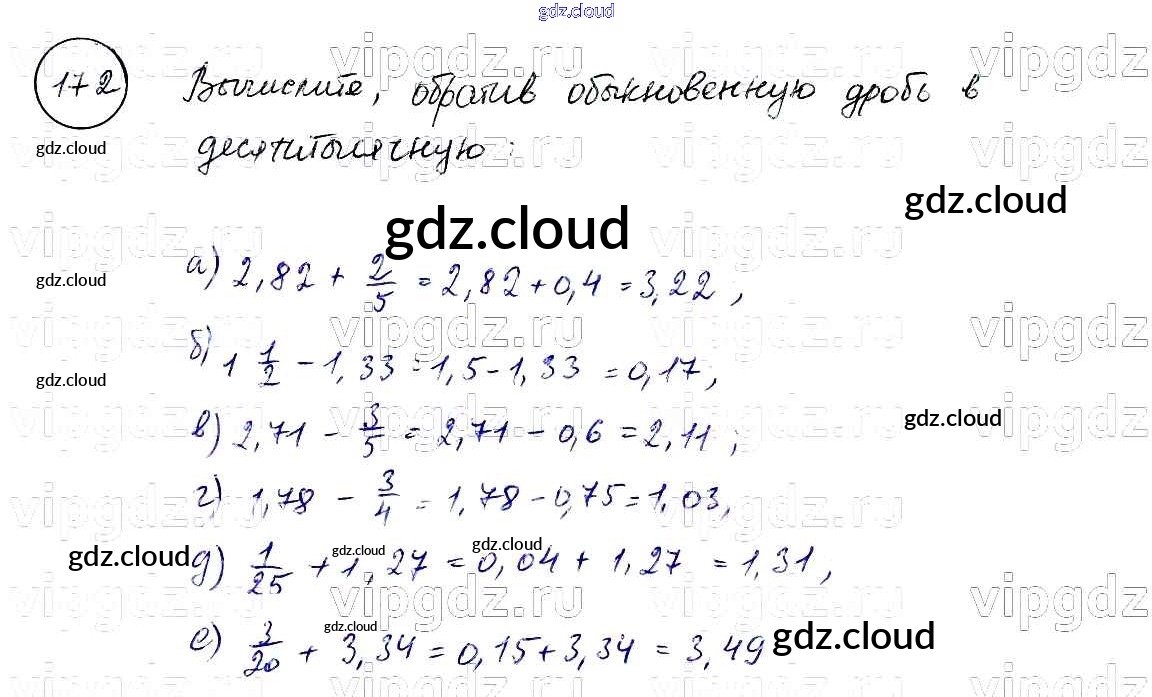 gdz.cloud
172 Вычислите, обратив обыкновенную дробь в
десятитысячную:
gdz.cloud
gdz.cloud
gdz.cloud
а) 2,82 + 2/5 = 2,82 + 0,4 = 3,22 ,
gdz.cloud
б) 1 1/2 - 1,33 = 1,5 - 1,33 = 0,17,
gdz.cloud
в) 2,71 - 3/5 = 2,71 - 0,6 = 2,11 ;
gdz.cloud
г) 1,78 - 3/4 = 1,78 - 0,75 = 1,03,
gdz.cloud
gdz.cloud
gdz.cloud
д) 1/25 + 1,27 = 0,04 + 1,27 = 1,31 ,
gdz.cloud
е) 3/20 + 3,34 = 0,15 + 3,34 = 3,49
gdz.cloud
vipgdz.ru